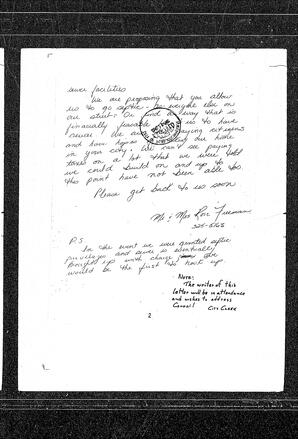 sewer facilities.
We are proposing that you allow
us to go septic like everyone else on
our street. Or find a way that is
financially feasible for us to have
sewer! We are paying citizens
and have hopes our home
in your city. We can't see paying
taxes on a lot that we were told
we could build on and up to
this point have not been able too.
Please get back to us soon
Mr & Mrs Freeman
P.S.
In the event we were granted septic
privileges and sewer is eventually
brought up with charge we
would be the first to hook up.
Note:
The writer of this
letter will be in attendance
and wishes to address
Council
City Clerk
2